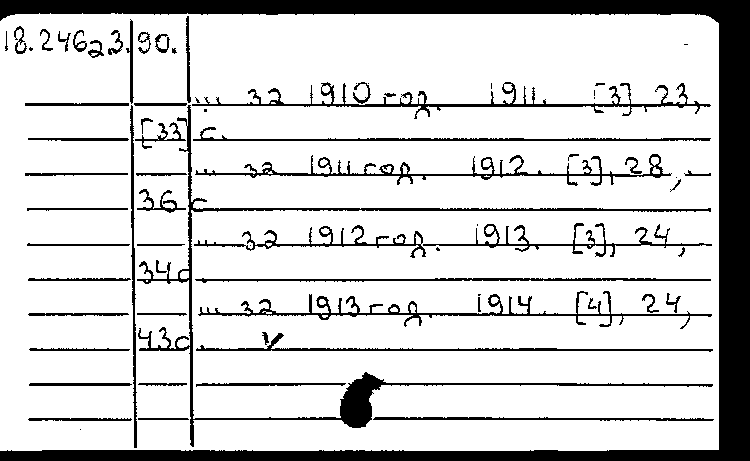 18.246 23.90.
... за 1910 год. 1911. [3], 23,
[33] с.
... за 1911 год. 1912. [3], 28,
36 с
... за 1912 год. 1913. [3], 24,
34 с.
... за 1913 год. 1914. [4], 24,
43 с.